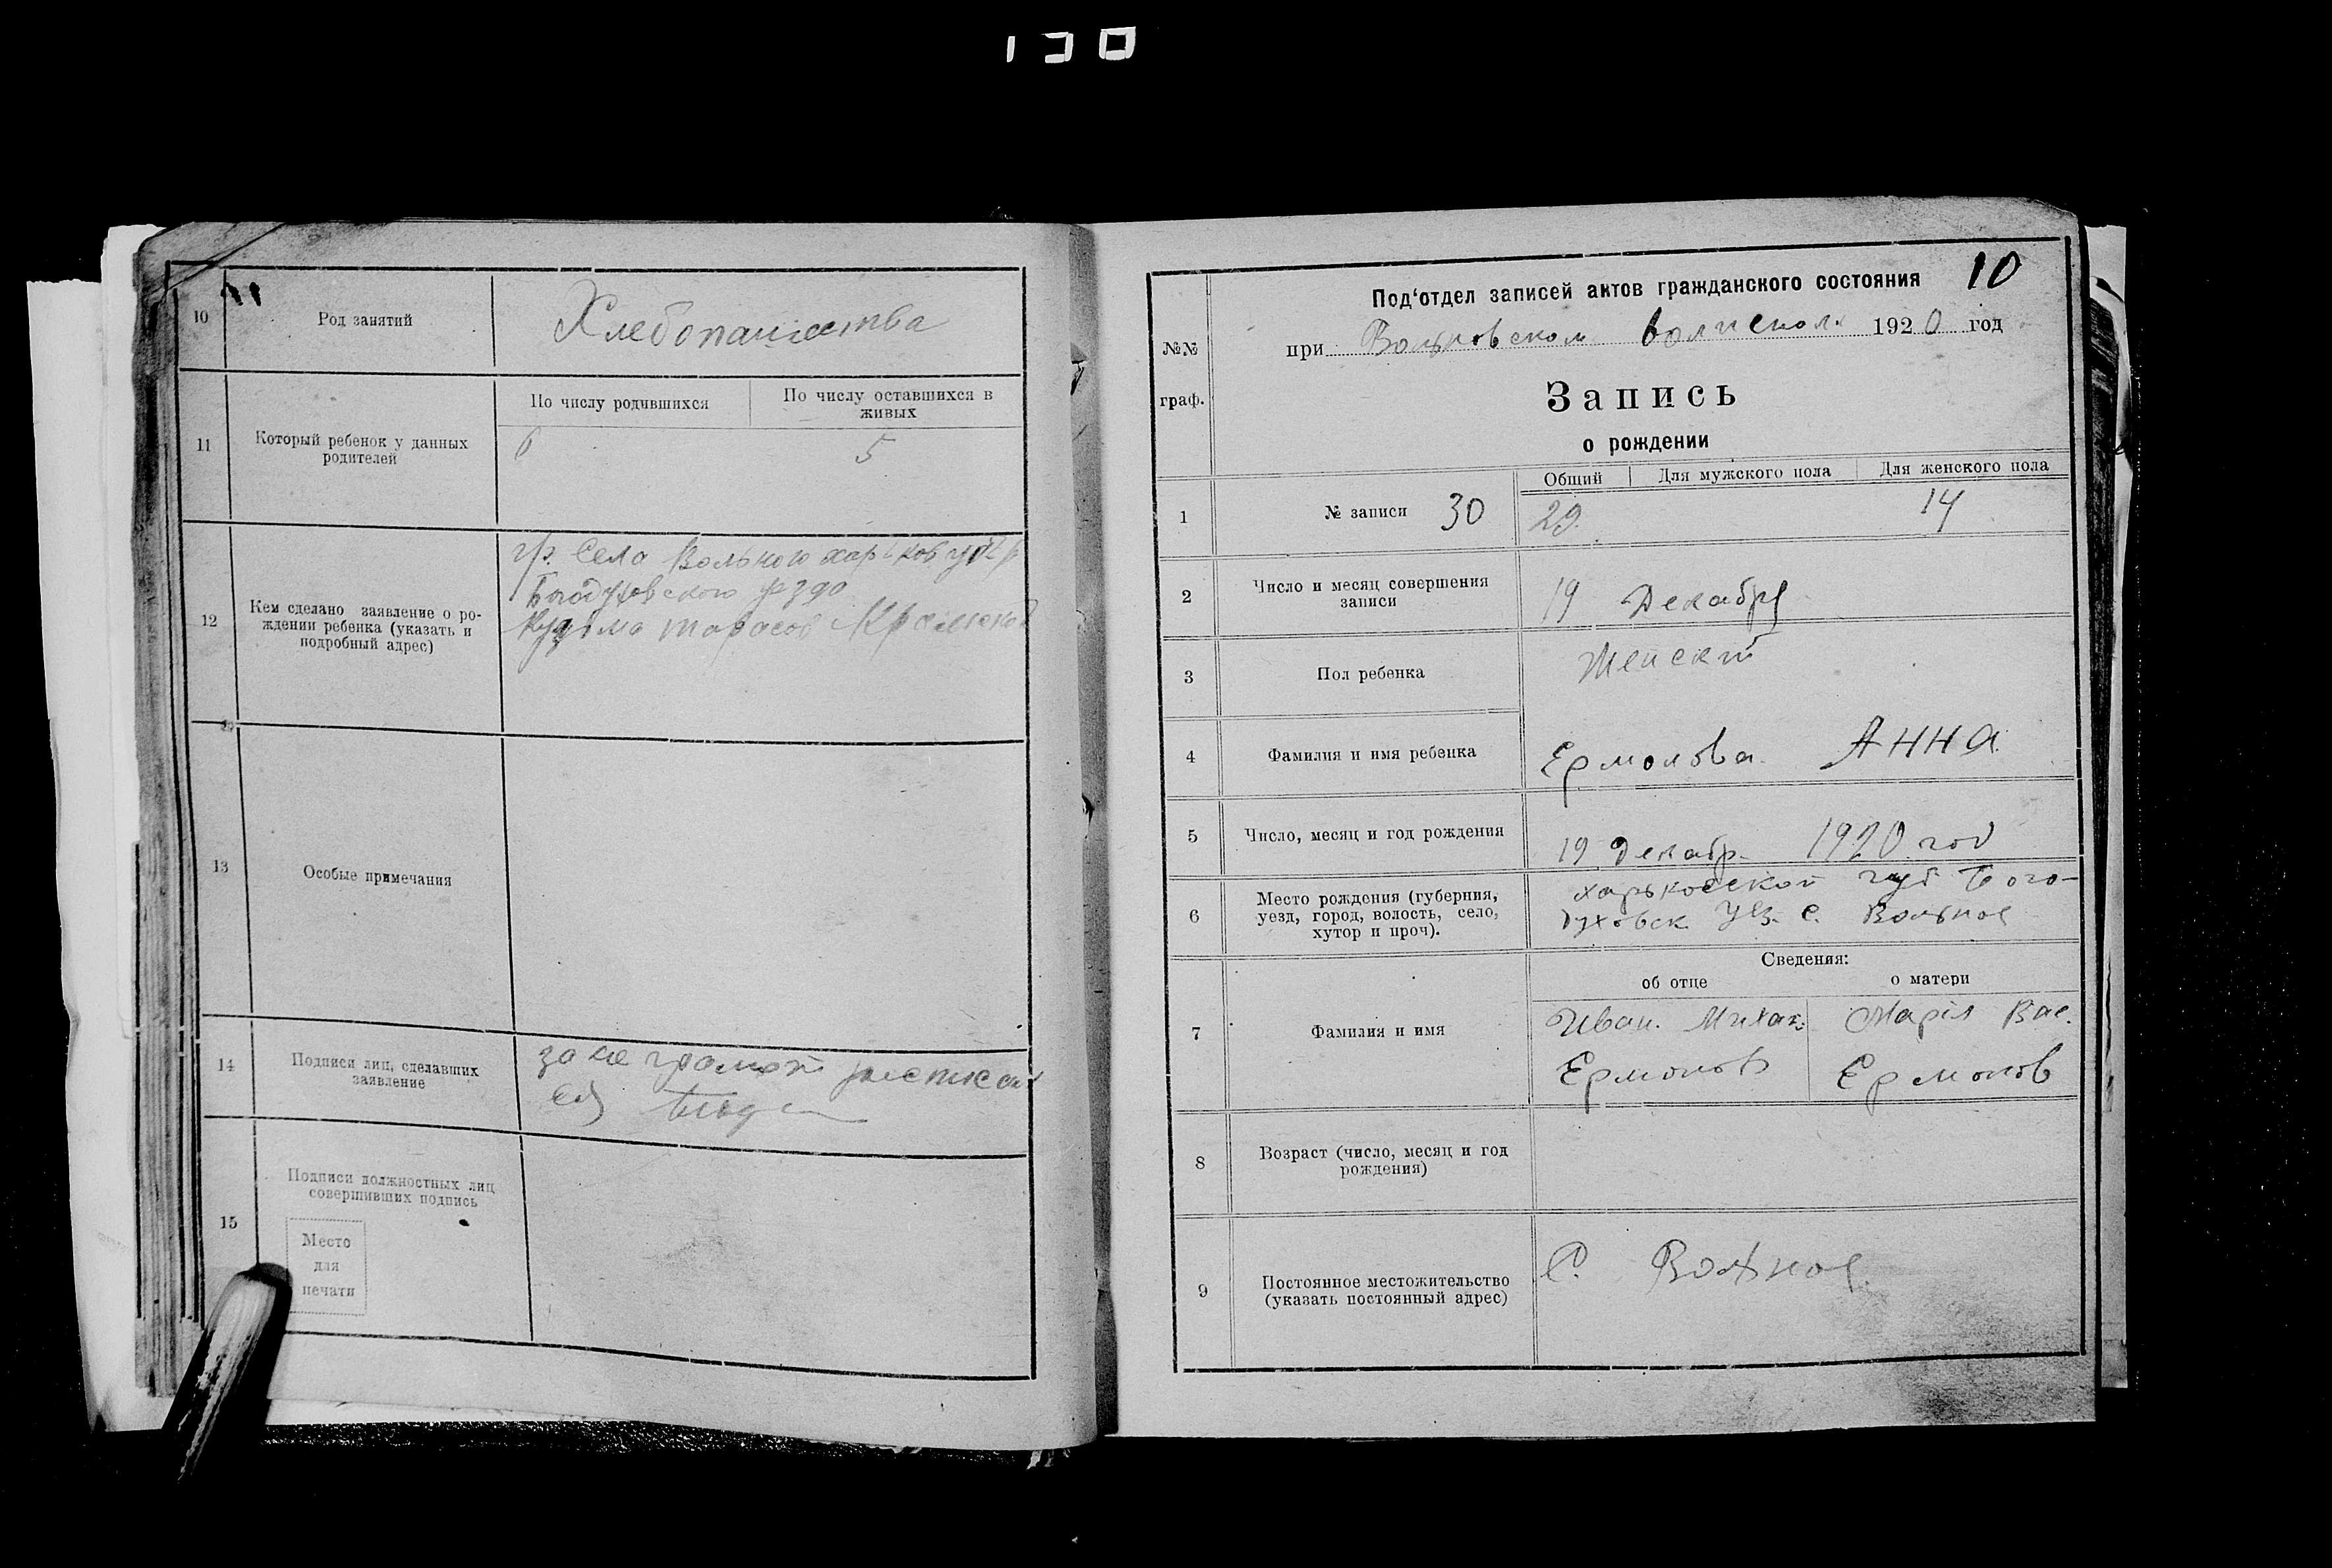 130
10
Род занятий
Хлебопашества
11
Который ребенок у данных
родителей
По числу родившихся
По числу оставшихся в
живых
6
5
12
Кем сделано заявление о ро-
ждении ребенка (указать и
подробный адрес)
гр. Села Вольного харьков
Богодуховского
Кузьма тарасов
13
Особые примечания
14
Подписи лиц, сделавших
заявление
за не грамот
15
Подписи должностных лиц
совершивших подпись
Место
для
печати
10
Под'отдел записей актов гражданского состояния
при Вольновском волисполк 1920 год
№№
граф.
Запись
о рождении
Общий
Для мужского пола
Для женского пола
1
№ записи
30
29.
14
2
Число и месяц совершения
записи
19 Декабря
3
Пол ребенка
Женский
4
Фамилия и имя ребенка
Ермолова Анна
5
Число, месяц и год рождения
19 Декабр. 1920 год
6
Место рождения (губерния,
уезд, город, волость, село,
хутор и проч).
харьковской губ Бого-
духовск. Уез. с. Вольное
Сведения:
об отце
о матери
7
Фамилия и имя
Иван. Михаи.
Ермолов
Марія Вас.
Ермолов
8
Возраст (число, месяц и год
рождения)
9
Постоянное местожительство
(указать постоянный адрес)
С. Вольное.